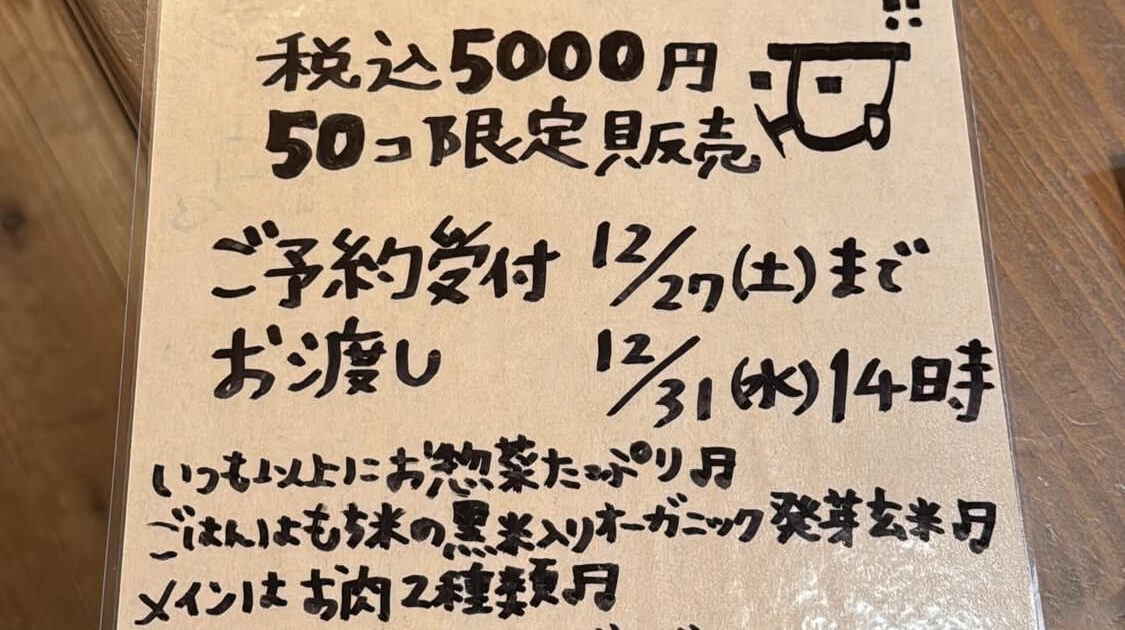 税込5000円
50コ限定販売
ご予約受付 12/27(土)まで
お渡し 12/31(水)14時
いつも以上にお惣菜たっぷり♫
ごはんはもち米の黒米入りオーガニック発芽玄米♫
メインはお肉2種類♫